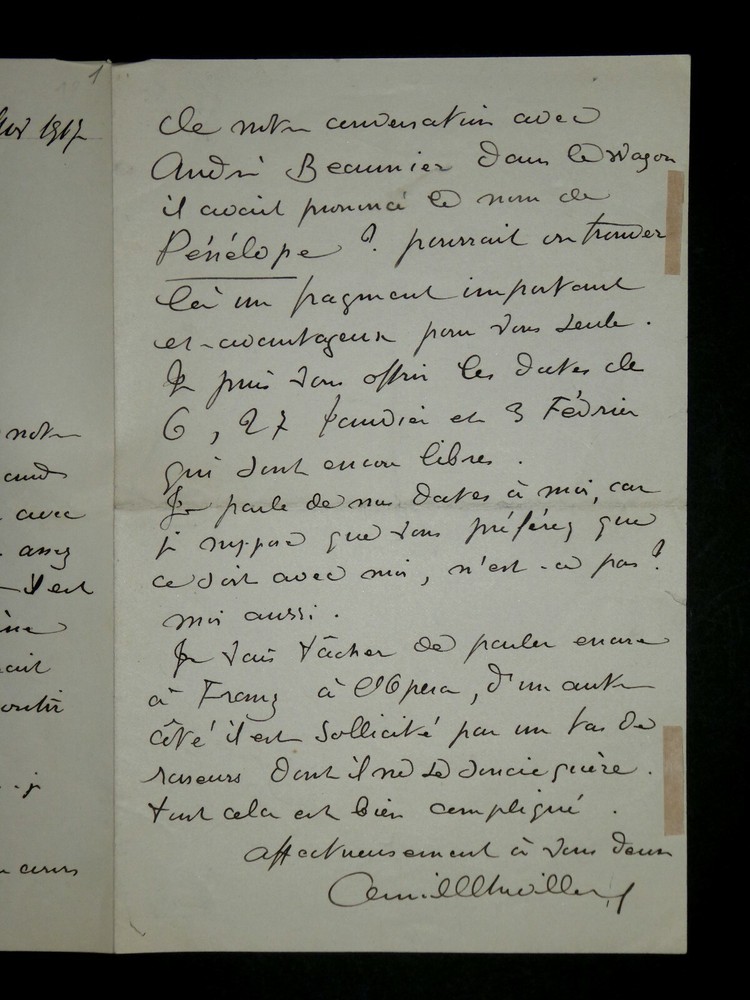 1
1917
note
avec
assez
est
cours
de notre conversation avec
André Beaunier dans le wagon
il avait prononcé le nom de
Pénélope ? pourrait on trouver
là un fragment important
et avantageux pour vous seule.
Je puis vous offrir les dates de
6, 27 Janvier et 3 Février
qui sont encore libres.
Je parle de nos dates à moi, car
je suppose que vous préférez que
ce soit avec moi, n'est-ce pas ?
moi aussi.
Je vais tâcher de parler encore
à Franz à l'Opéra, d'un autre
côté il est sollicité par un tas de
raseurs dont il ne se soucie guère.
tout cela est bien compliqué.
affectueusement à vous deux
Camille Chevillard